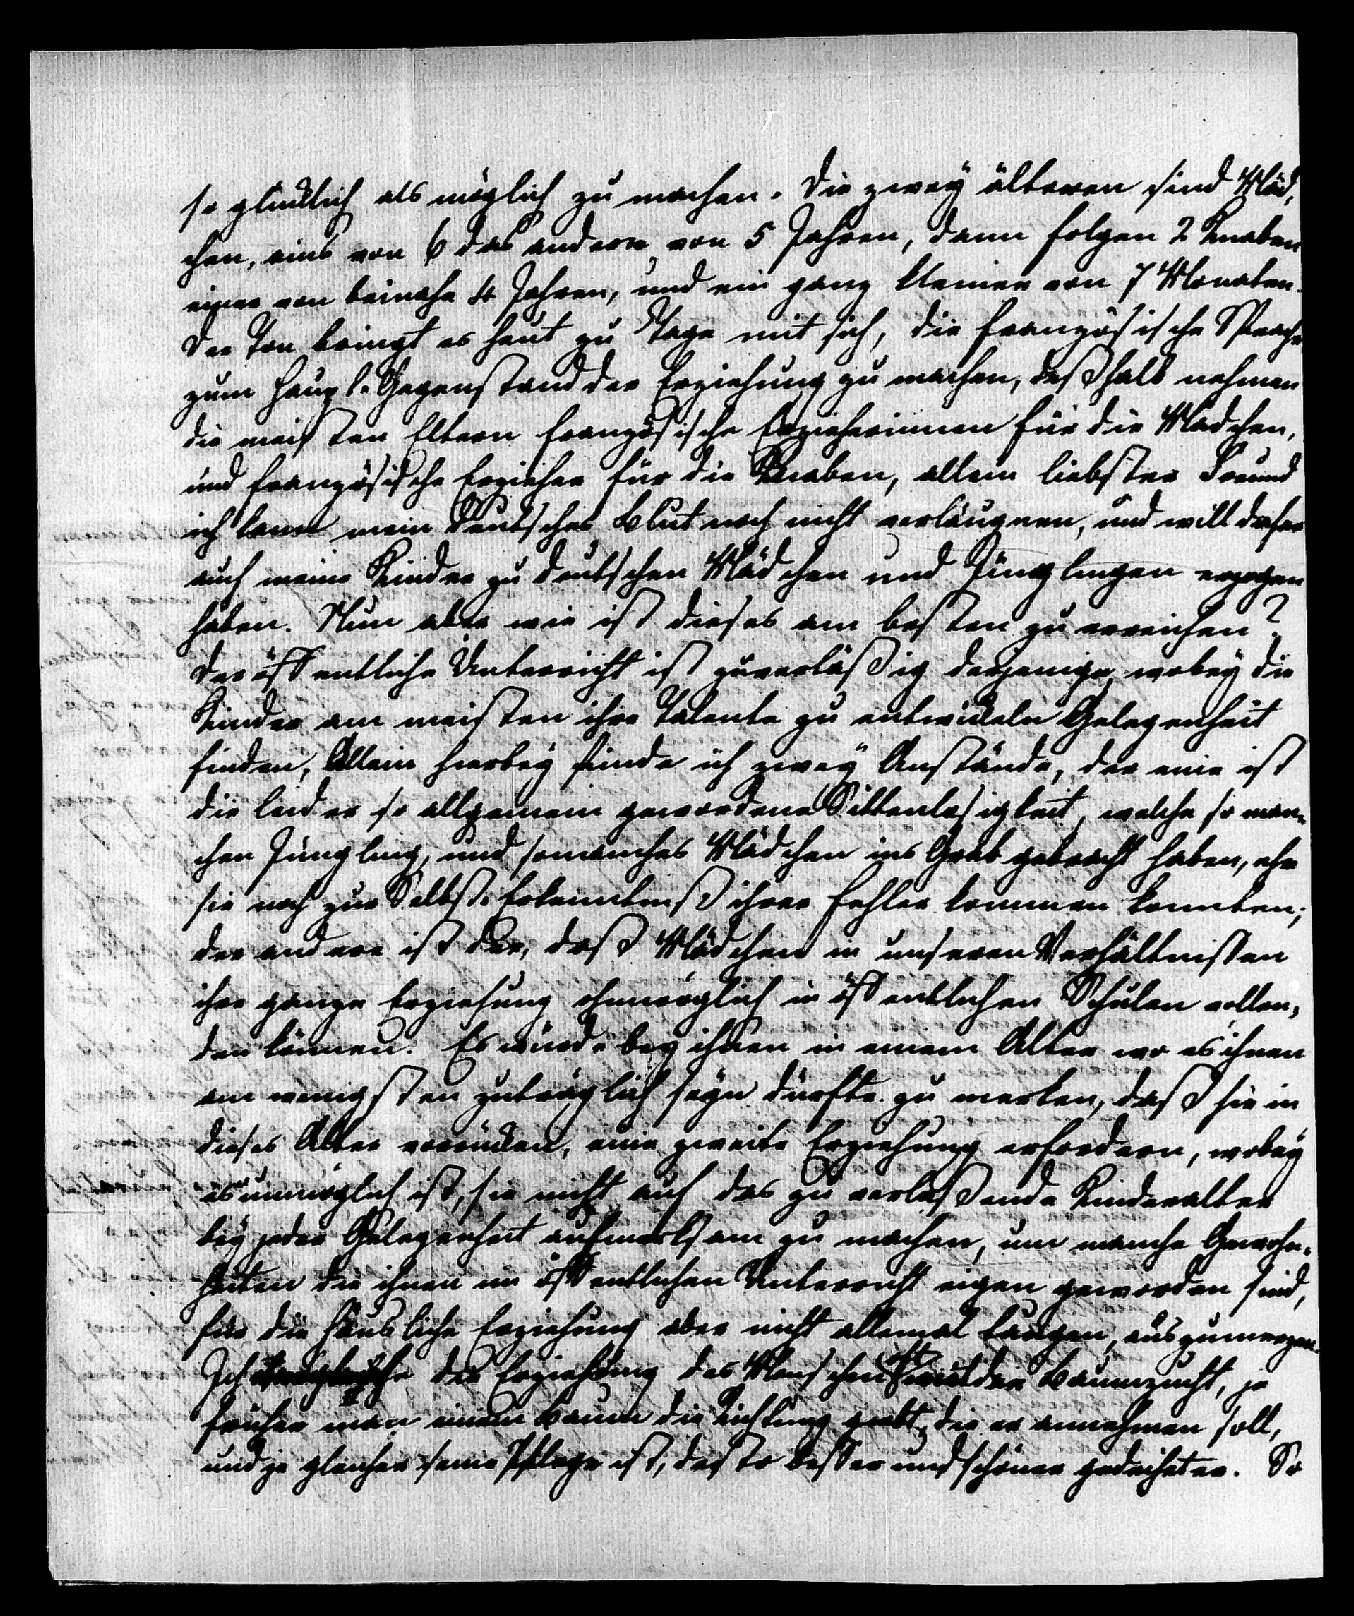 so glücklich als möglich zu machen. Die zwey älteren sind Mäd,
chen, eins von 6 das andere von 5 Jahren, dann folgen 2 Knaben
einer von beinahe 4 Jahren, und ein ganz kleiner von 7 Monaten.
Der Ton bringt es heut zu Tage mit sich, die französische Sprache
zum Haupt-Gegenstand der Erziehung zu machen, deßhalb nehmen
die meisten Eltern französische Erzieherinnen für die Mädchen,
und französische Erzieher für die Knaben, allein liebster Freund
ich kann mein Deutsches Blut noch nicht verläugnen, und will daher
auch meine Kinder zu deutschen Mädchen und Jünglingen erzogen
haben. Nun aber wie ist dieses am besten zu erreichen?
Der öffentliche Unterricht ist zuverläßig derjenige, wobey die
Kinder am meisten ihre Talente zu entwickeln Gelegenheit
finden, Allein hierbey finde ich zwey Anstände, der eine ist
die leider so allgemein gewordene Sittenlosigkeit, welche so man-
chen Jüngling, und somanches Mädchen ins Grab gebracht haben, ehe
sie noch zur Selbst-Erkenntniß ihrer Fehler kommen konnten;
der andere ist der, daß Mädchen in unseren Verhältnißen
ihre ganze Erziehung ohnmöglich in öffentlichen Schulen vollen,
den können. Es würde bey ihnen in einem Alter wo es ihnen
am wenigsten zuträglich seyn dürfte zu merken, daß sie in
dieses Alter vorrücken, eine zweite Erziehung erfordern, wobey
es unmöglich ist, sie nicht auf das zu verlaßende Kinderalter
bey jeder Gelegenheit aufmerksam zu machen, um manche Gewohn-
heiten die ihnen im öffentlichen Unterricht eigen geworden sind,
für die häusliche Erziehung aber nicht allemal taugen, auszumerzen.
Ich vergleiche die Erziehung des Menschen oft mit der Baumzucht, je
früher man einem Baum die Richtung giebt, die er annehmen soll,
und je gleicher seine Pflege ist, desto besser und schöner gedeihet er. So